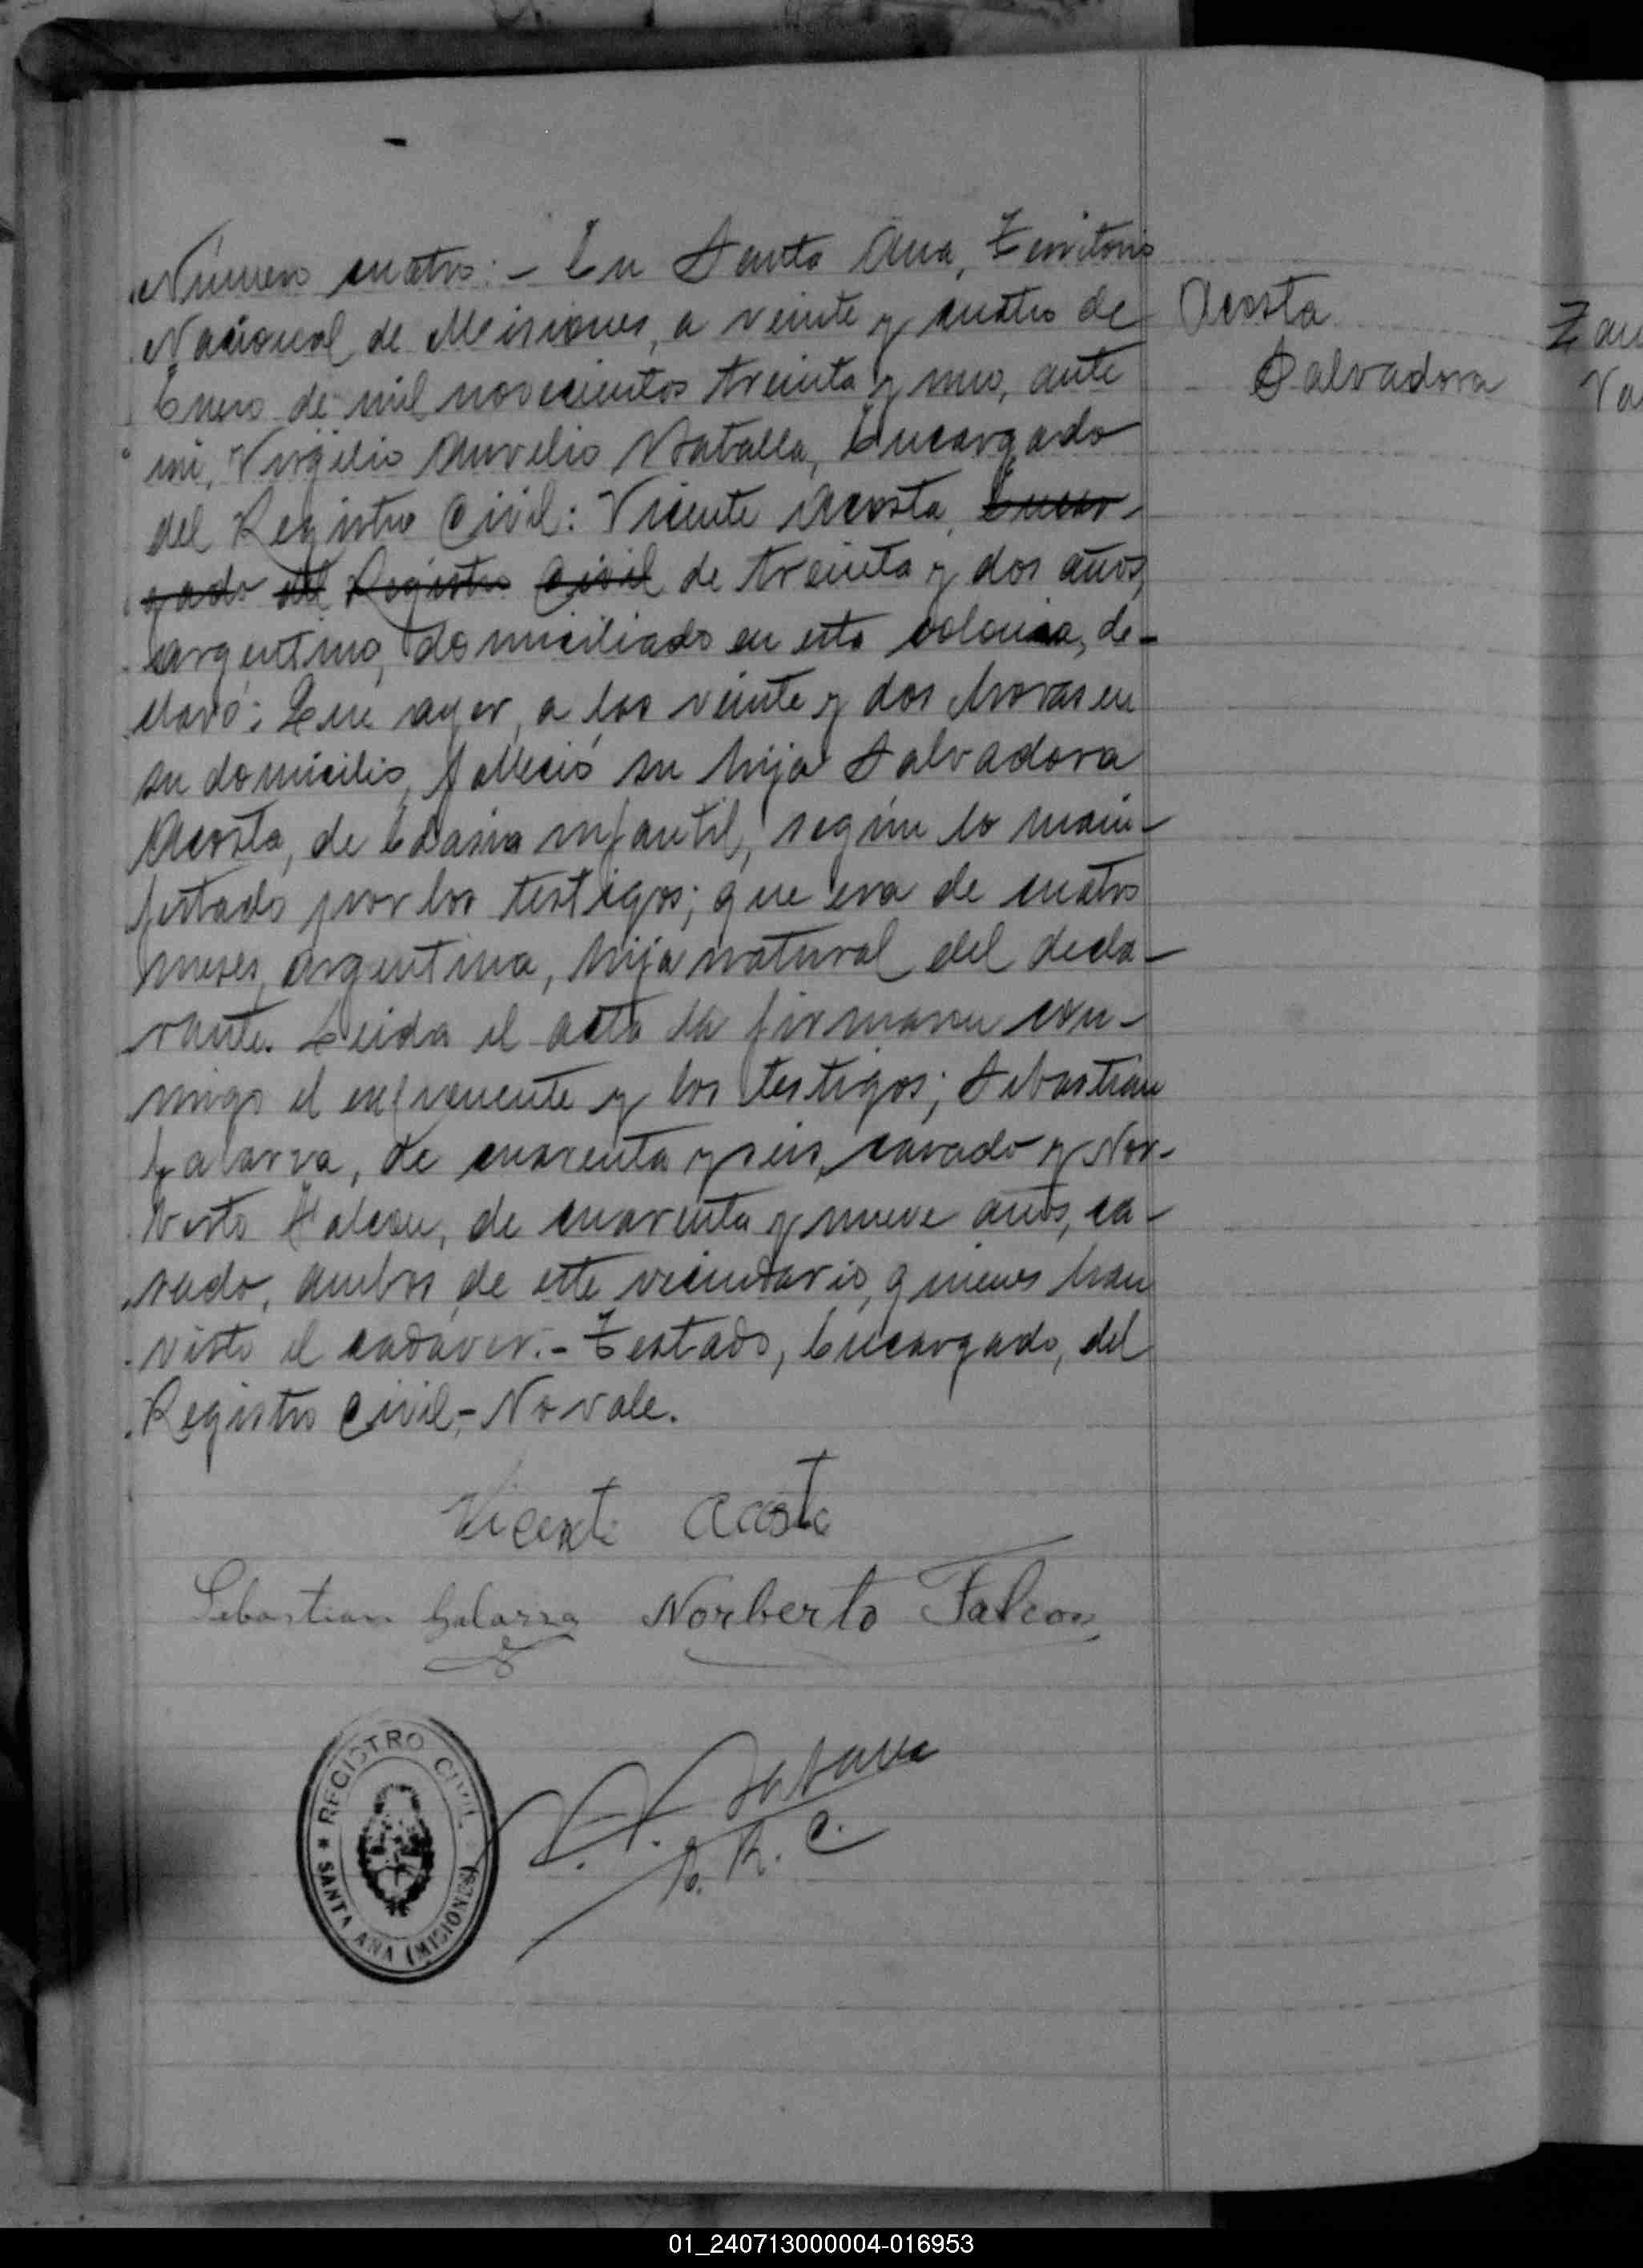 Número cuatro:- En Santa Ana, Territorio
Nacional de Misiones, a veinte y cuatro de
Enero de mil novecientos treinta y uno, ante
mi, Virgilio Aurelio Batalla, Encargado
del Registro Civil: Vicente Acosta, Encar-
gado del Registro Civil de treinta y dos años,
argentino, domiciliado en esta colonia, de-
claró: Que ayer, a las veinte y dos horas en
su domicilio, falleció su hija Salvadora
Acosta, de infantil, según lo mani-
festado por los testigos; que era de cuatro
meses, argentina, hija natural del decla-
rante. Leida el acta la firmaron con-
migo el exponente y los testigos; Sebastian
Galarza, de cuarenta y seis, casado y Nor-
berto Falcon, de cuarenta y nueve años, ca-
sado, ambos de este vecindario, quienes han
visto el cadáver.- Testado, Encargado, del
Registro Civil,- No vale.
Acosta
Salvadora
Vicente Acosta
Sebastian Galarza Norberto Falcon
REGISTRO CIVIL
* SANTA ANA (MISIONES)
V. A. Batalla
E. R. C.
01_240713000004-016953